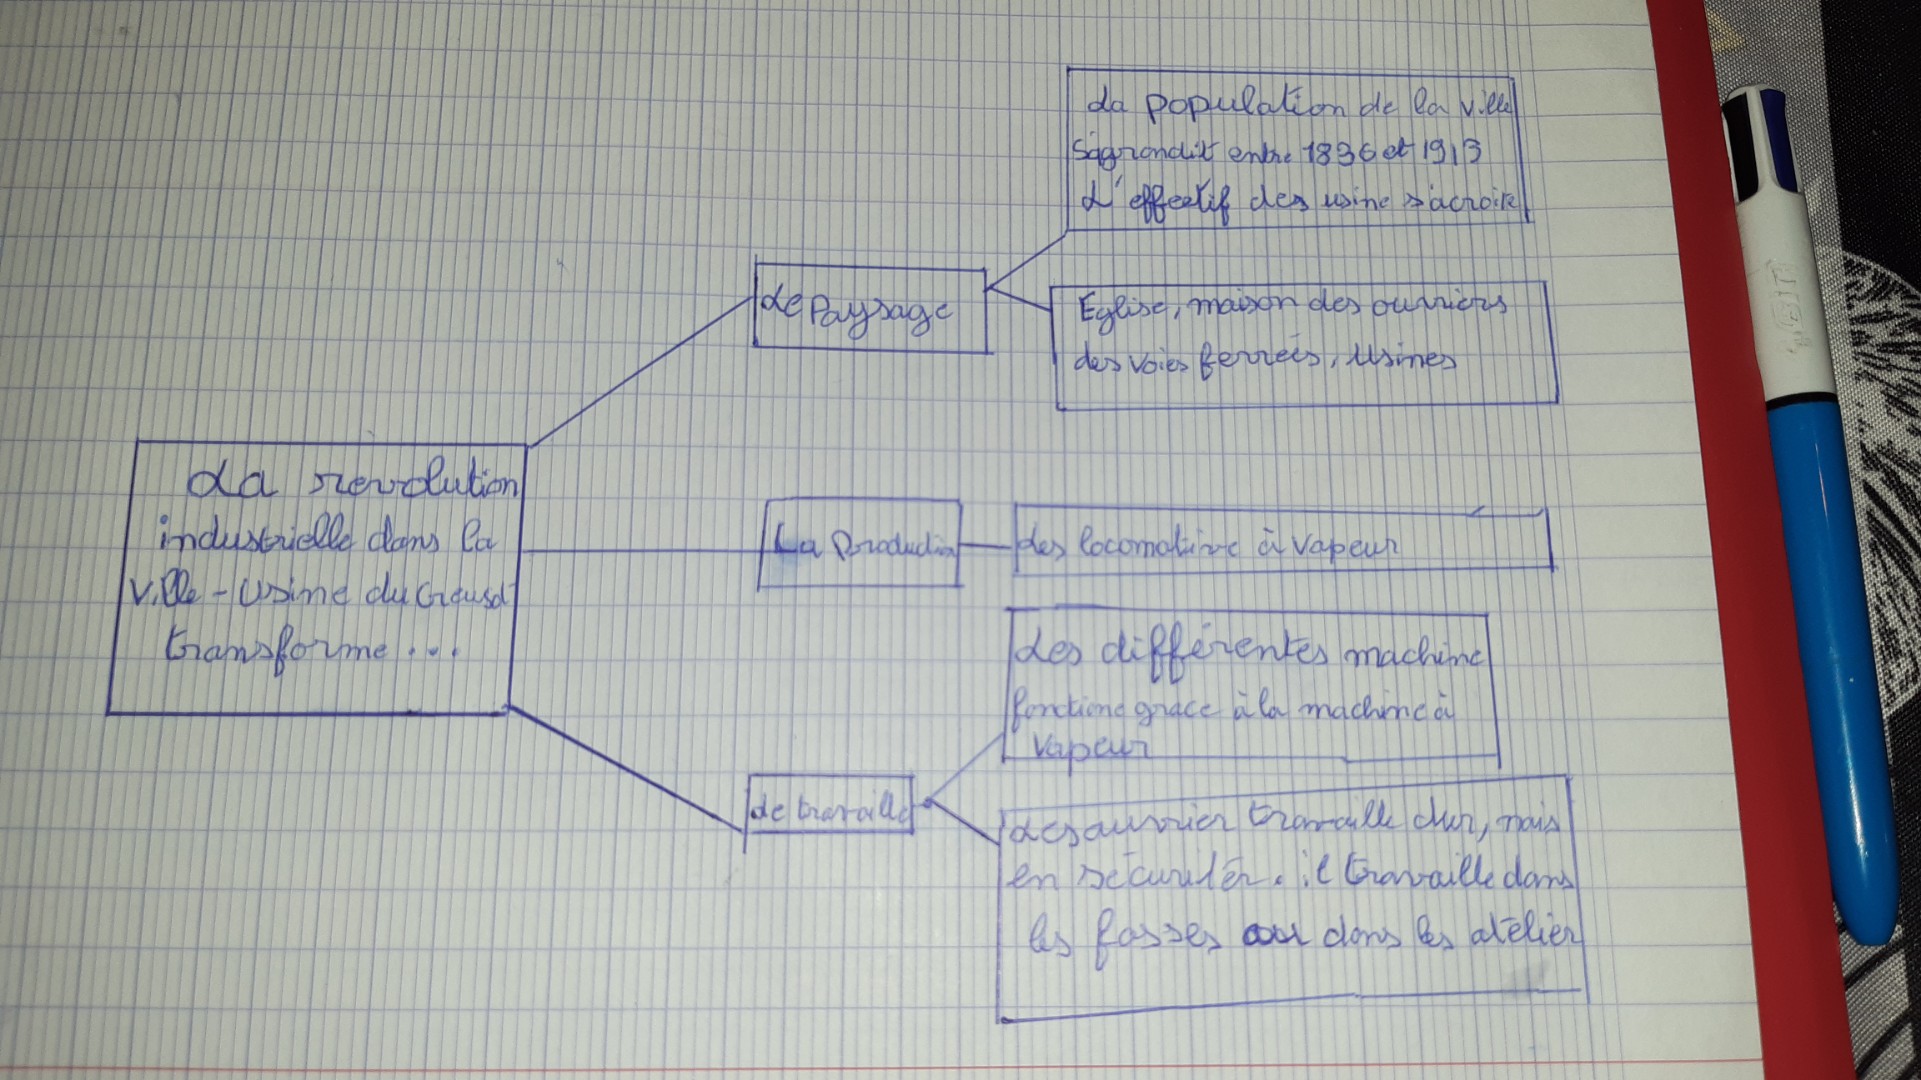 La revolution
industrielle dans la
ville - usine du Creusot
transforme ...
Le Paysage
La population de la ville
s'agrandit entre 1836 et 1913
L'effectif des usine s'acroite
Eglise, maison des ouvriers
des voies ferrées, Usines
La Production
des locomative à vapeur
Le travaille
Les différentes machine
fonctione grace à la machine à
vapeur
Les ouvrier travaille dur, mais
en sécuritér. il travaille dans
les fosses ou dans les atelier
BIC